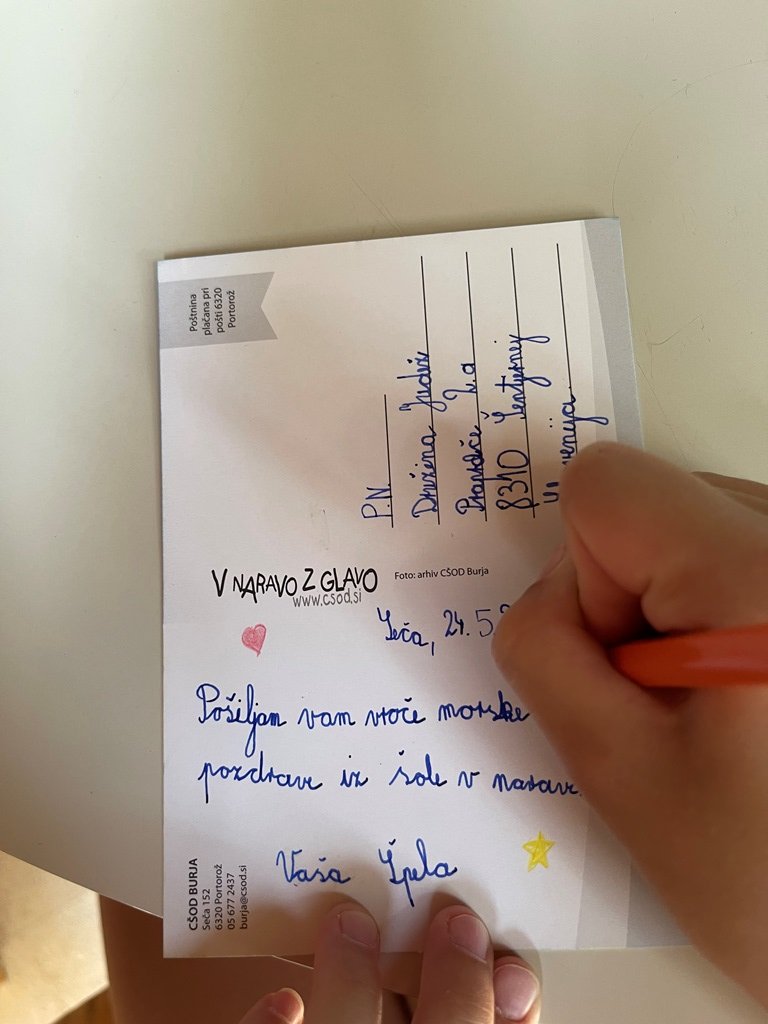 Poštnina
plačana pri
pošti 6320
Portorož
P.N.
Družina
8310 Šentjernej
V NARAVO Z GLAVO
www.csod.si
Foto: arhiv CŠOD Burja
Seča, 24. 5.
Pošiljam vam vroče morske
pozdrave iz šole v naravi.
Vaša Špela
CŠOD BURJA
Seča 152
6320 Portorož
05 677 2437
burja@csod.si